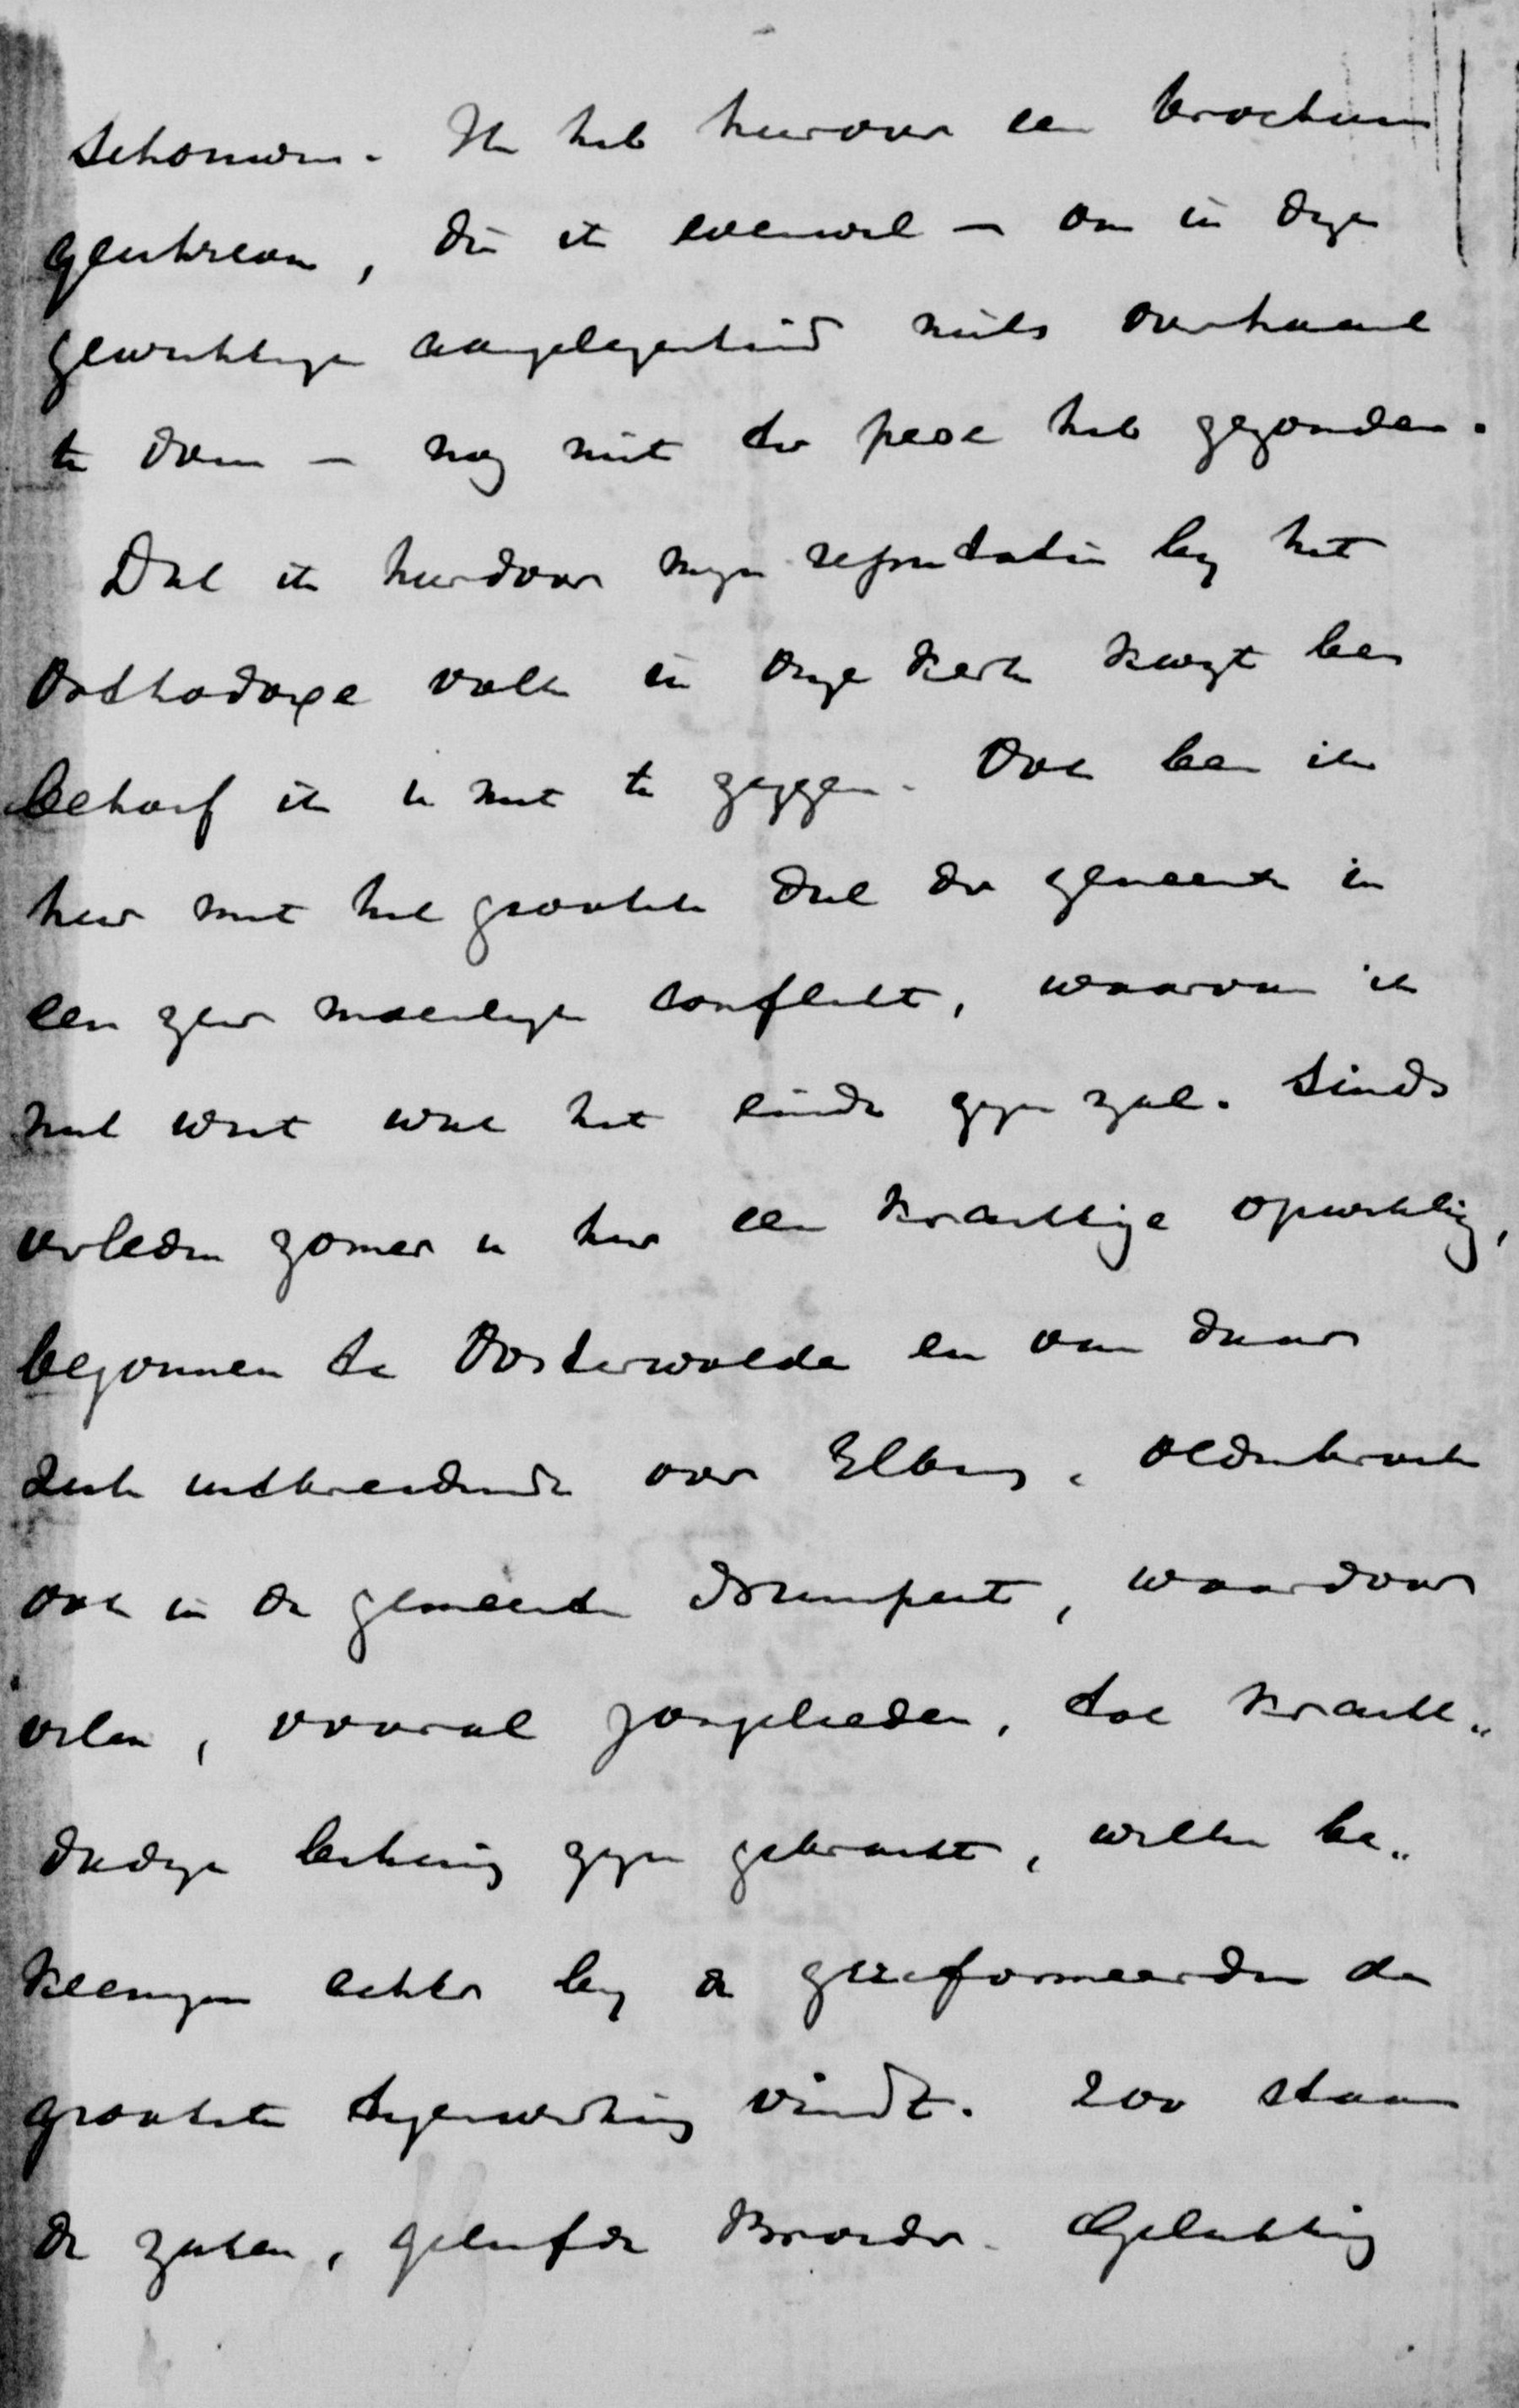 schouwen. Ik heb hierover een brochure
geschreven, die ik evenwel – om in deze
gewichtige aangelegenheid niets overhaast
te doen – nog niet ter perse heb gezonden.
Dat ik hierdoor mijn reputatie bij het
orthodoxe volk in onze kerk kwijt ben
behoef ik u niet te zeggen. Ook ben ik
hier met het grootste deel der gemeente in
een zeer moeilijk conflikt, waarvan ik
niet weet wat het einde zijn zal. Sinds
verleden zomer is hier een krachtige opwekking,
begonnen te Oosterwolde en van daar
zich uitbreidende over Elburg, Oldebroek
ook in de gemeente Doornspijk, waardoor
velen, vooral jongelieden, tot kracht„
dadige bekeering zijn gebracht, welke be„
keeringen echter bij de gereformeerden de
grootste tegenwerking vindt. Zoo staan
de zaken, geliefde Broeder. Gelukkig